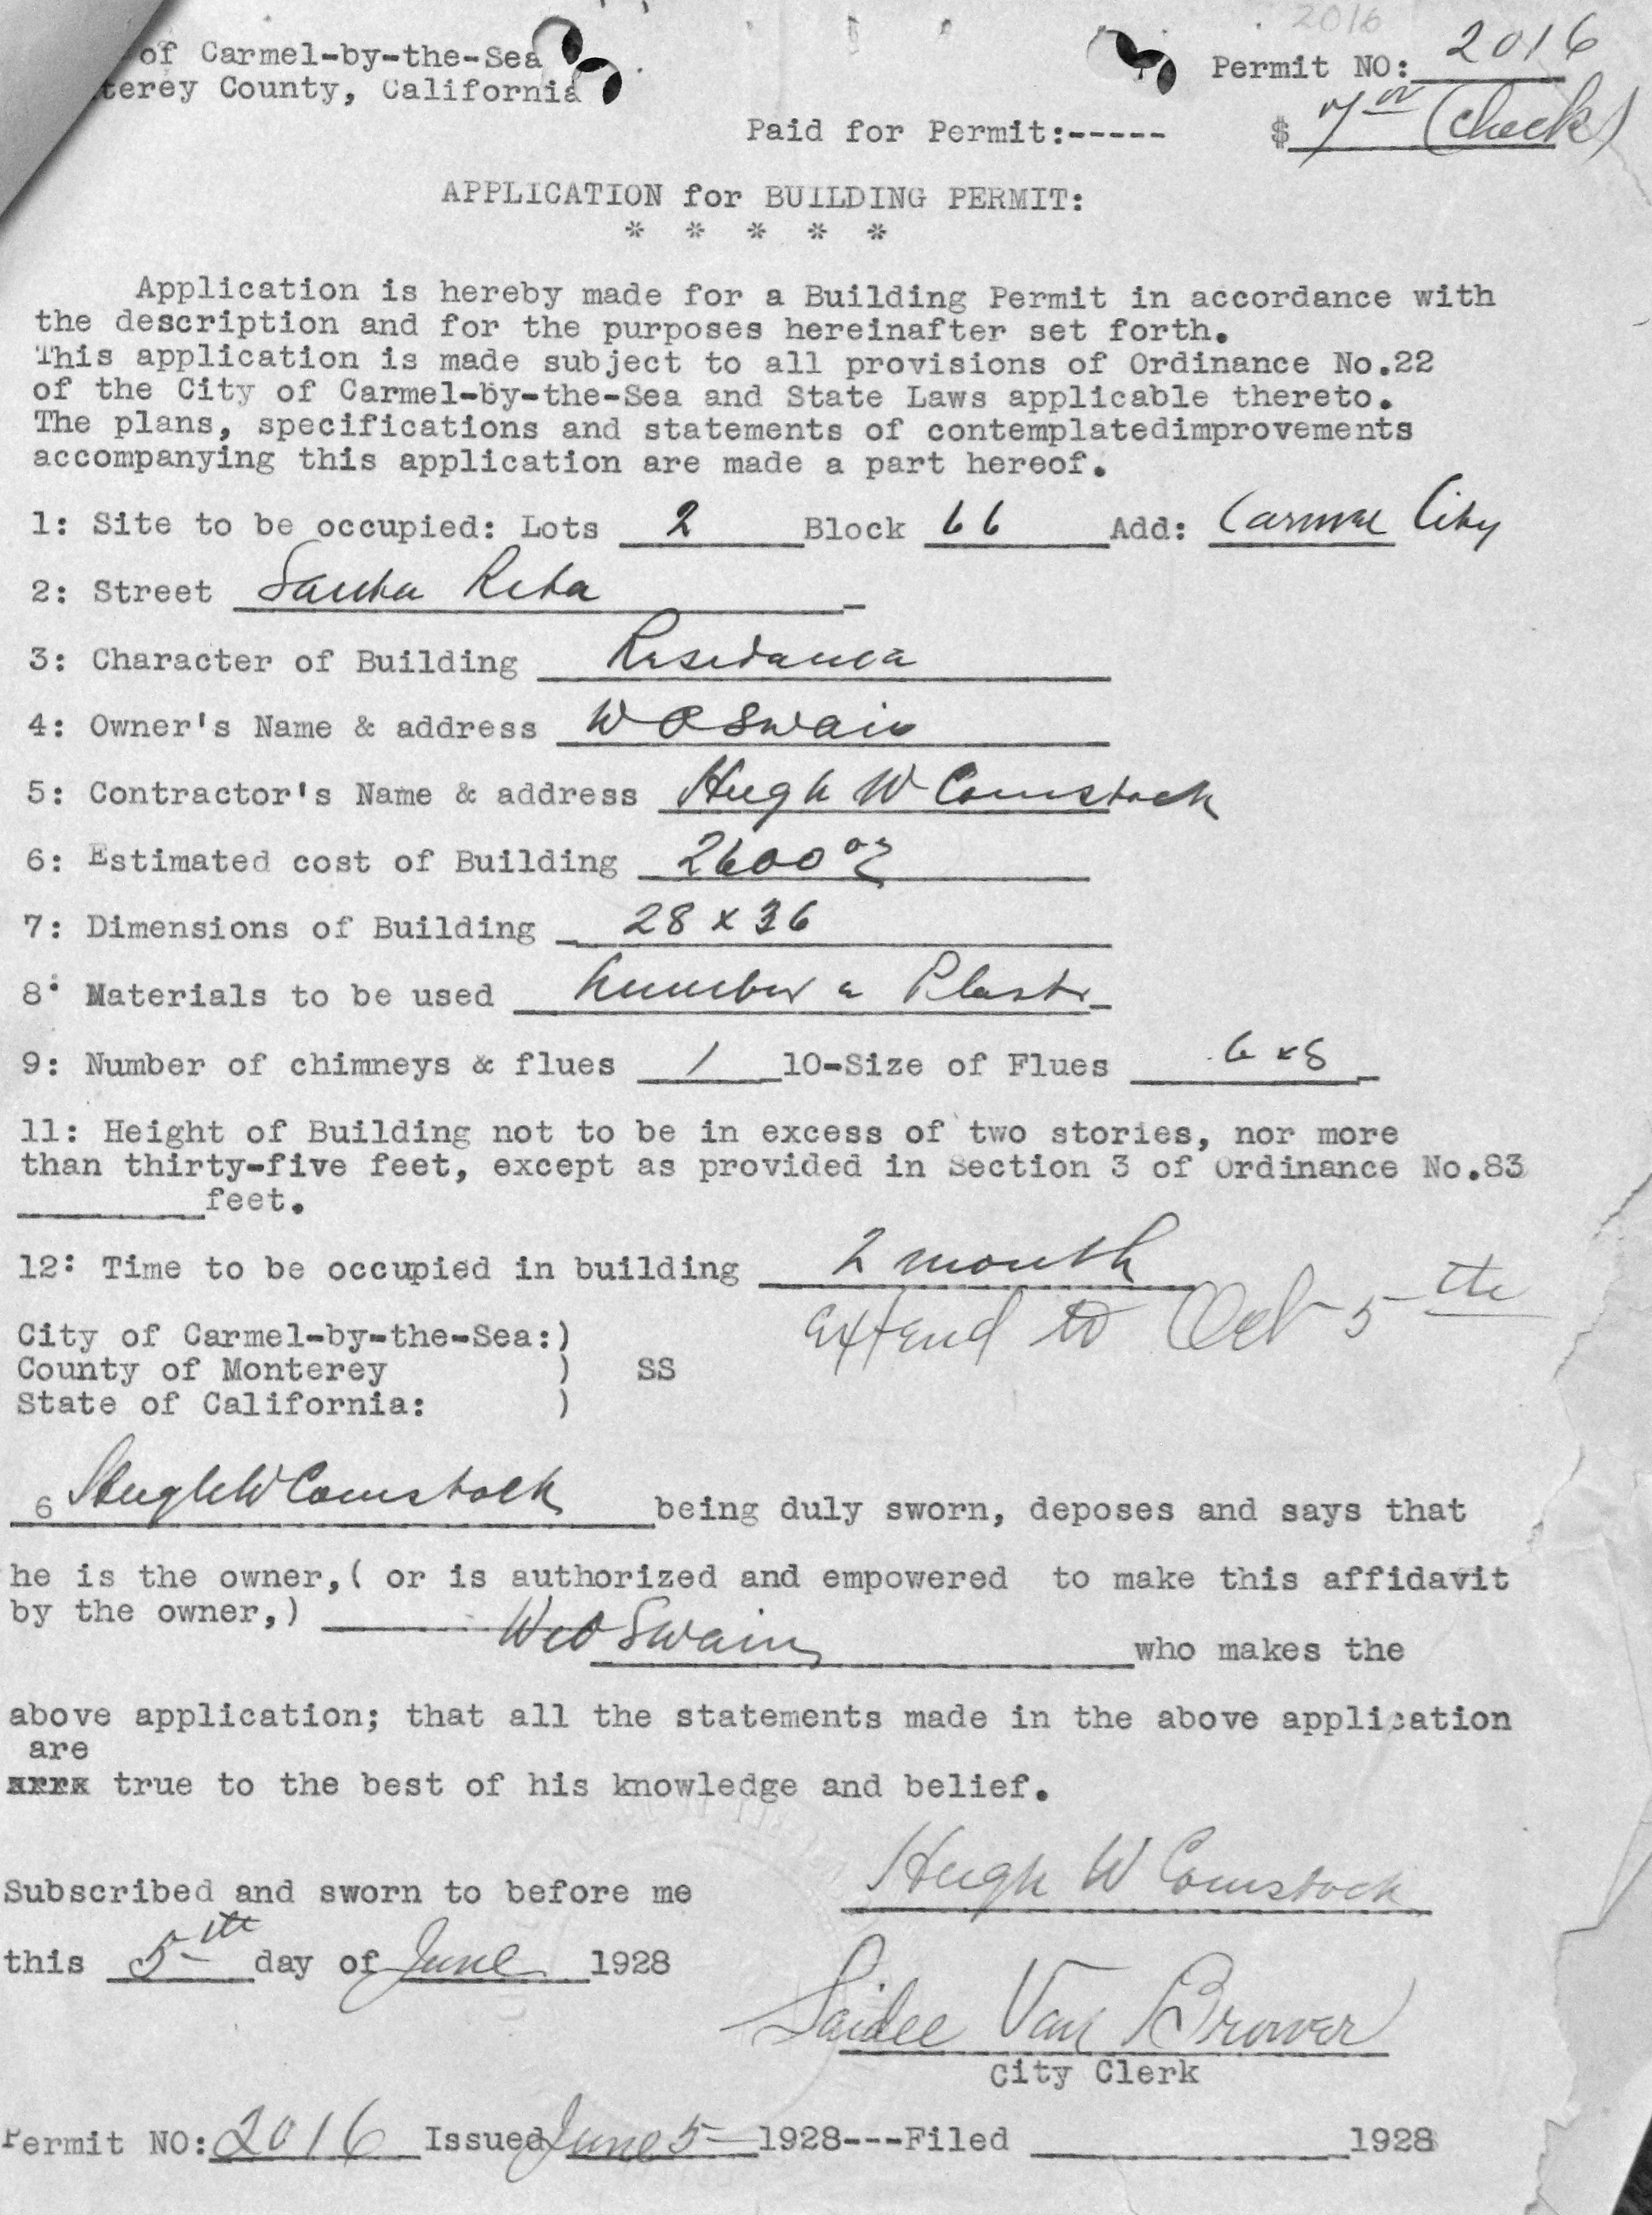 2016
of Carmel-by-the-Sea
terey County, California
Permit NO: 2016
Paid for Permit:----- $ 7 00 (Check)
APPLICATION for BUILDING PERMIT:
* * * * *
Application is hereby made for a Building Permit in accordance with
the description and for the purposes hereinafter set forth.
This application is made subject to all provisions of Ordinance No.22
of the City of Carmel-by-the-Sea and State Laws applicable thereto.
The plans, specifications and statements of contemplatedimprovements
accompanying this application are made a part hereof.
1: Site to be occupied: Lots 2 Block 66 Add: Carmel City
2: Street Santa Rita
3: Character of Building Residence
4: Owner's Name & address W O Swain
5: Contractor's Name & address Hugh W Comstock
6: Estimated cost of Building 2600 00
7: Dimensions of Building 28 x 36
8: Materials to be used Lumber & Plaster
9: Number of chimneys & flues 1 10-Size of Flues 6 x 8
11: Height of Building not to be in excess of two stories, nor more
than thirty-five feet, except as provided in Section 3 of Ordinance No.83
feet.
12: Time to be occupied in building 2 month
extend to Oct 5th
City of Carmel-by-the-Sea:)
County of Monterey ) SS
State of California: )
6 Hugh W Comstock being duly sworn, deposes and says that
he is the owner,( or is authorized and empowered to make this affidavit
by the owner,) W O Swain who makes the
above application; that all the statements made in the above application
are
true to the best of his knowledge and belief.
Hugh W Comstock
Subscribed and sworn to before me
this 5th day of June 1928
Saidee Van Brower
City Clerk
Permit NO: 2016 Issued June 5 1928---Filed 1928